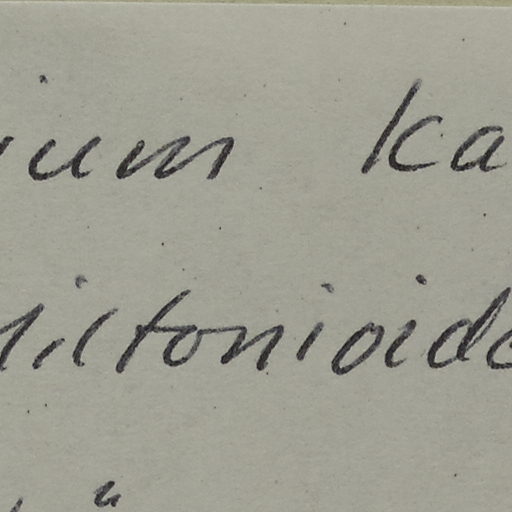 ium Ka
iltonioide